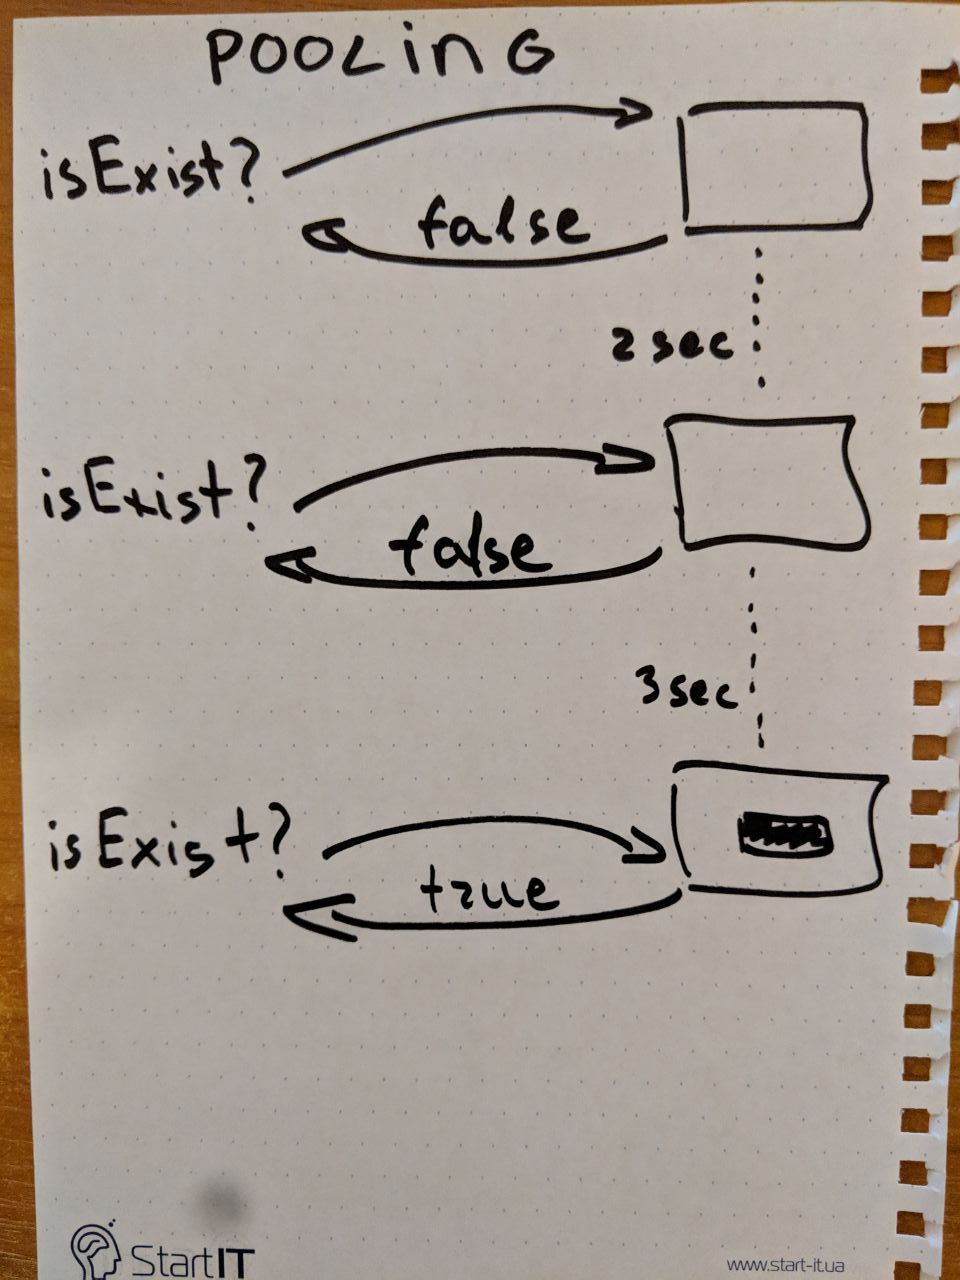 POOLinG
isExist?
false
2 sec
isExist?
false
3 sec
isExist?
true
StartIT
www.start-it.ua